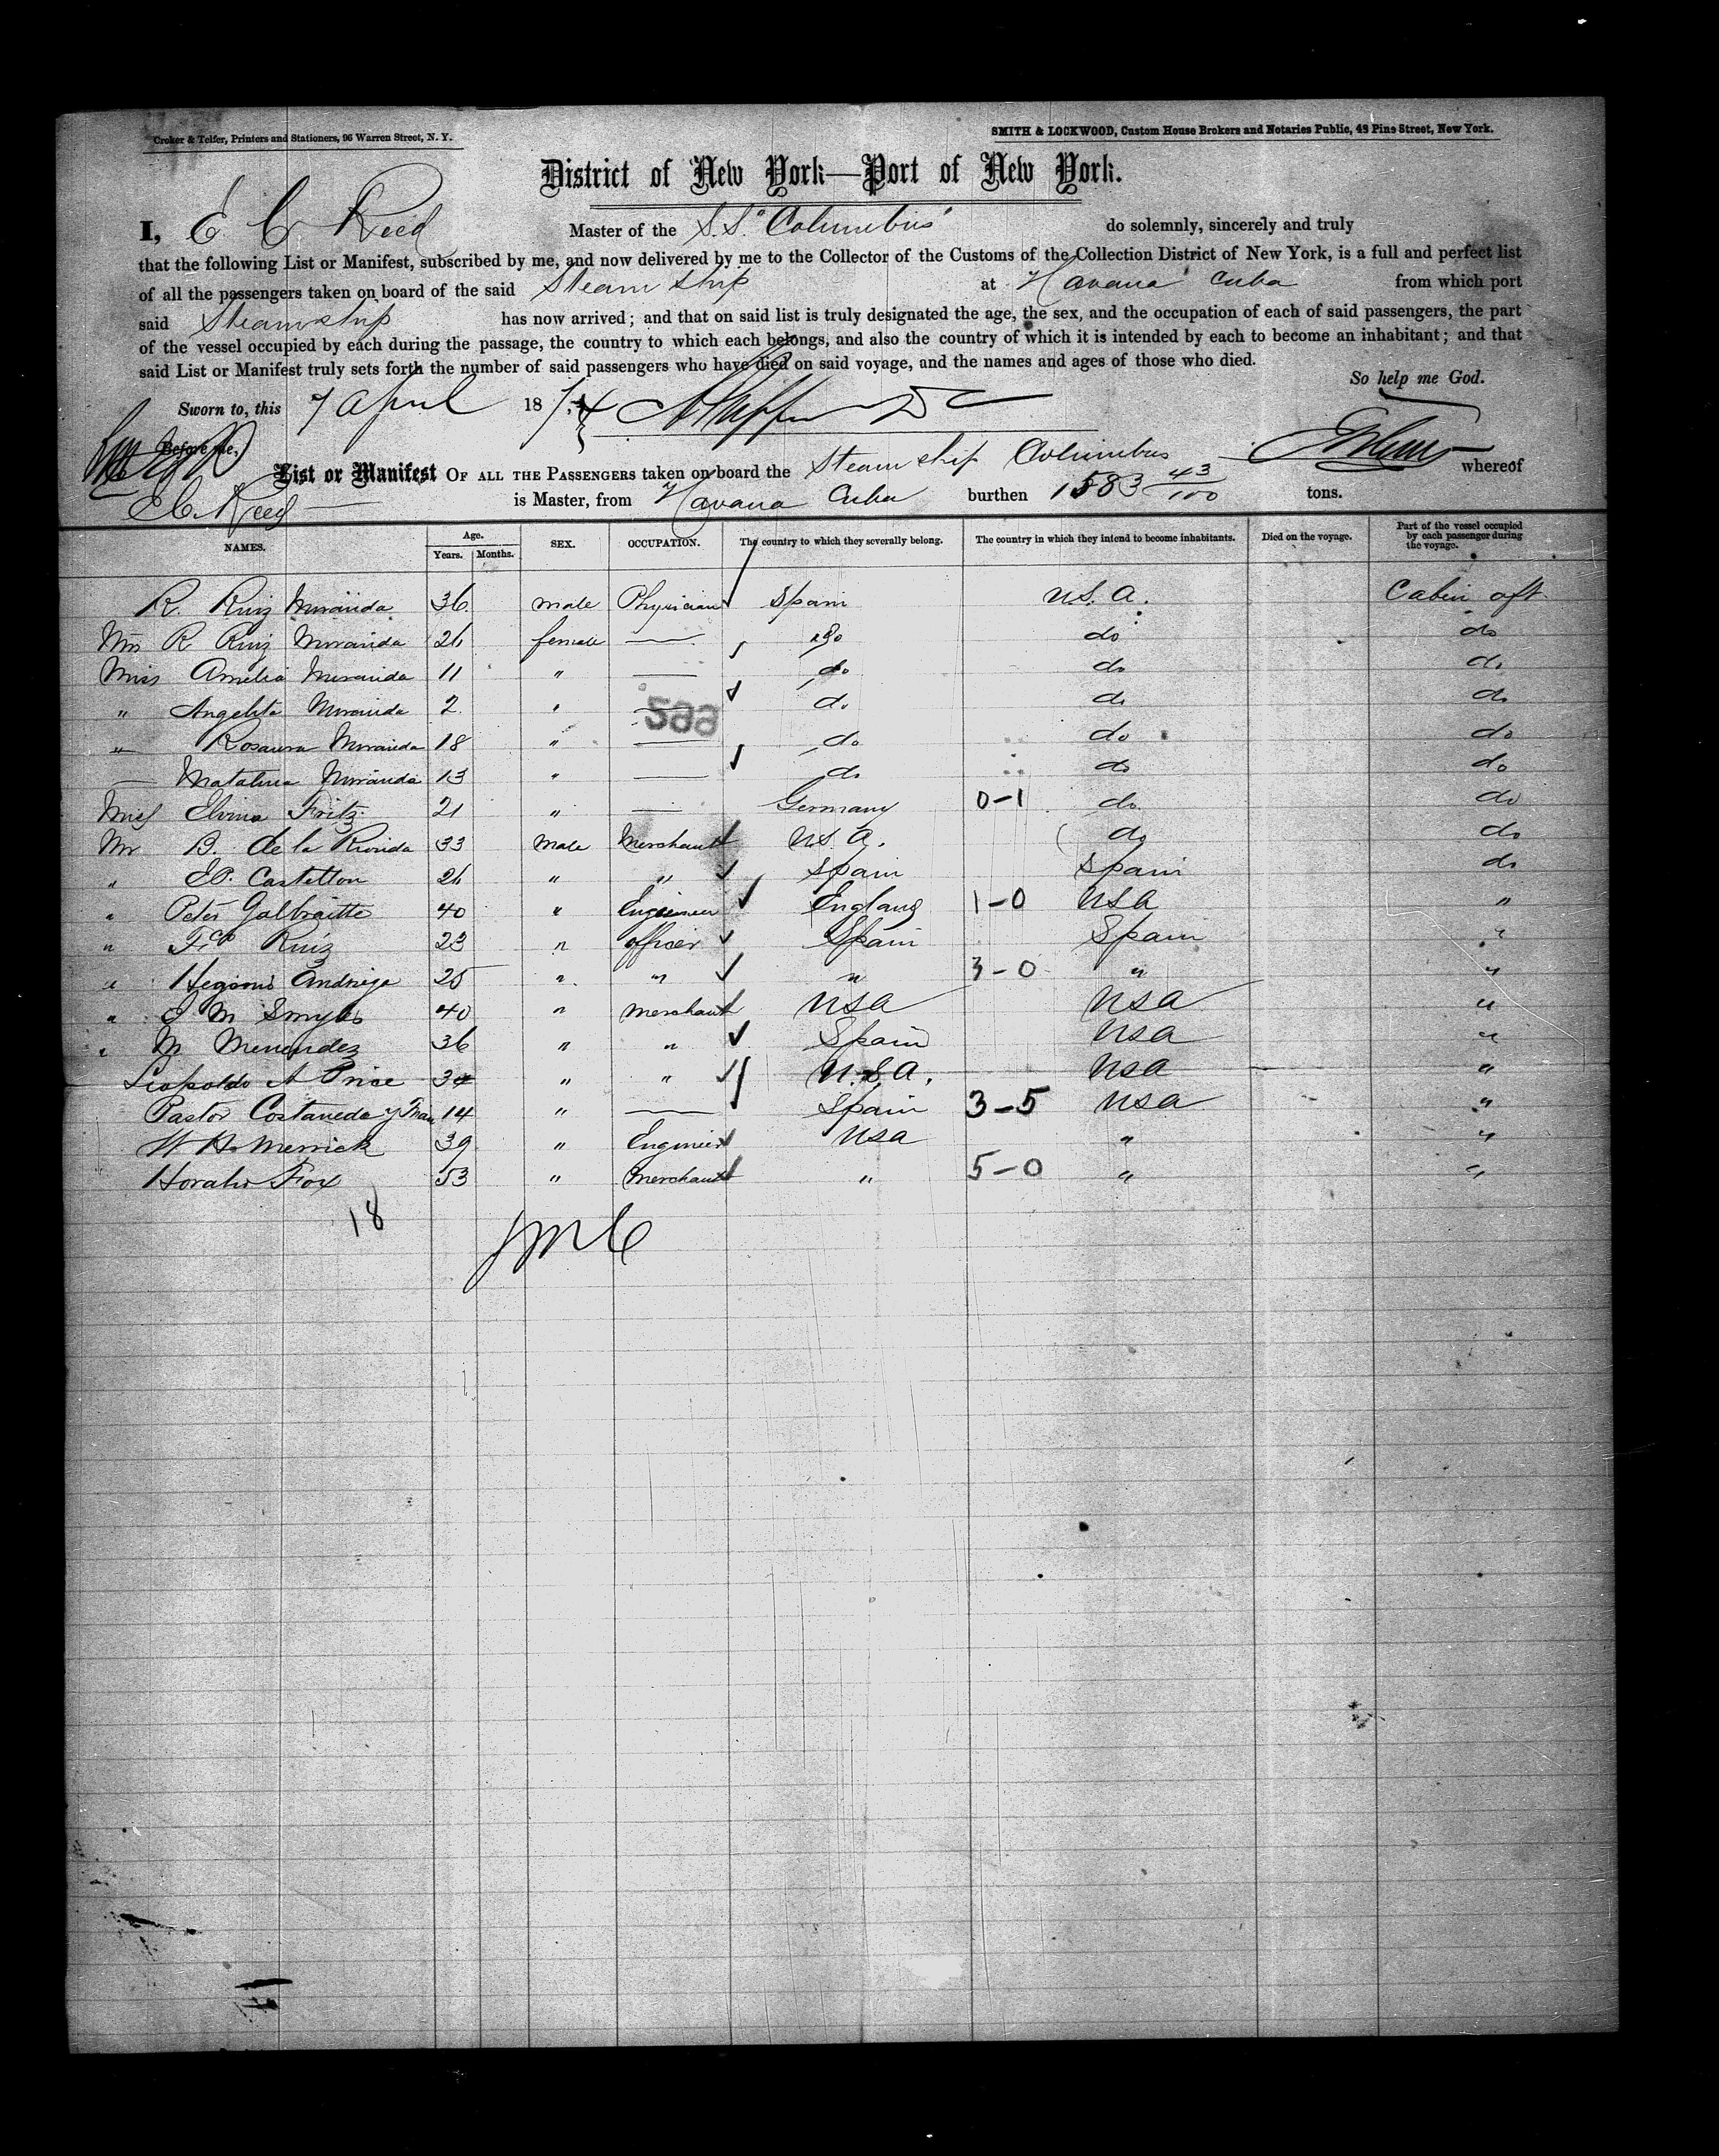 Croker & Telfer, Printers and Stationers, 96 Warren Street, N. Y.
SMITH & LOCKWOOD, Custom House Brokers and Notaries Public, 43 Pine Street, New York.
District of New York—Port of New York.
I, E. C. Reed Master of the S.S. "Columbus" do solemnly, sincerely and truly
that the following List or Manifest, subscribed by me, and now delivered by me to the Collector of the Customs of the Collection District of New York, is a full and perfect list
of all the passengers taken on board of the said Steam ship at Havana Cuba from which port
said Steamship has now arrived; and that on said list is truly designated the age, the sex, and the occupation of each of said passengers, the part
of the vessel occupied by each during the passage, the country to which each belongs, and also the country of which it is intended by each to become an inhabitant; and that
said List or Manifest truly sets forth the number of said passengers who have died on said voyage, and the names and ages of those who died.
So help me God.
Sworn to, this 7 April 1874
Before me,
List or Manifest OF ALL THE PASSENGERS taken on board the Steam ship Columbus whereof
E C. Reed is Master, from Havana Cuba burthen 1583 43/100 tons.
NAMES. Age. Years. Months. SEX. OCCUPATION. The country to which they severally belong. The country in which they intend to become inhabitants. Died on the voyage. Part of the vessel occupied by each passenger during the voyage.
R. Ruiz Miranda 36 male Physician Spain U.S.A. Cabin aft.
Mrs R Ruiz Miranda 26 female — do do do
Miss Amelia Miranda 11 " — do do do
" Angelita Miranda 2 " — do do do
588
" Rosaura Miranda 18 " — do do do
— Matalina Miranda 13 " — do do do
Miss Elvina Fritz 21 " — Germany 0-1 do do
Mr B. de la Rionda 33 Male Merchant U.S.A. do do
" E.P. Castellon 26 " " Spain Spain do
" Peter Galbraitte 40 " Engineer England 1-0 USA "
" Fco Ruiz 23 " officer Spain Spain "
" Andriga 25 " " " 3-0 " "
" J M Smyles 40 " merchant USA USA "
" M Menendez 36 " " Spain USA "
Leopoldo A Price 34 " " U.S.A. USA "
Pastor Costaneda y 14 " — Spain 3-5 USA "
W H Merrick 39 " Engineer USA " "
Horatio Fox 53 " Merchant " 5-0 " "
18